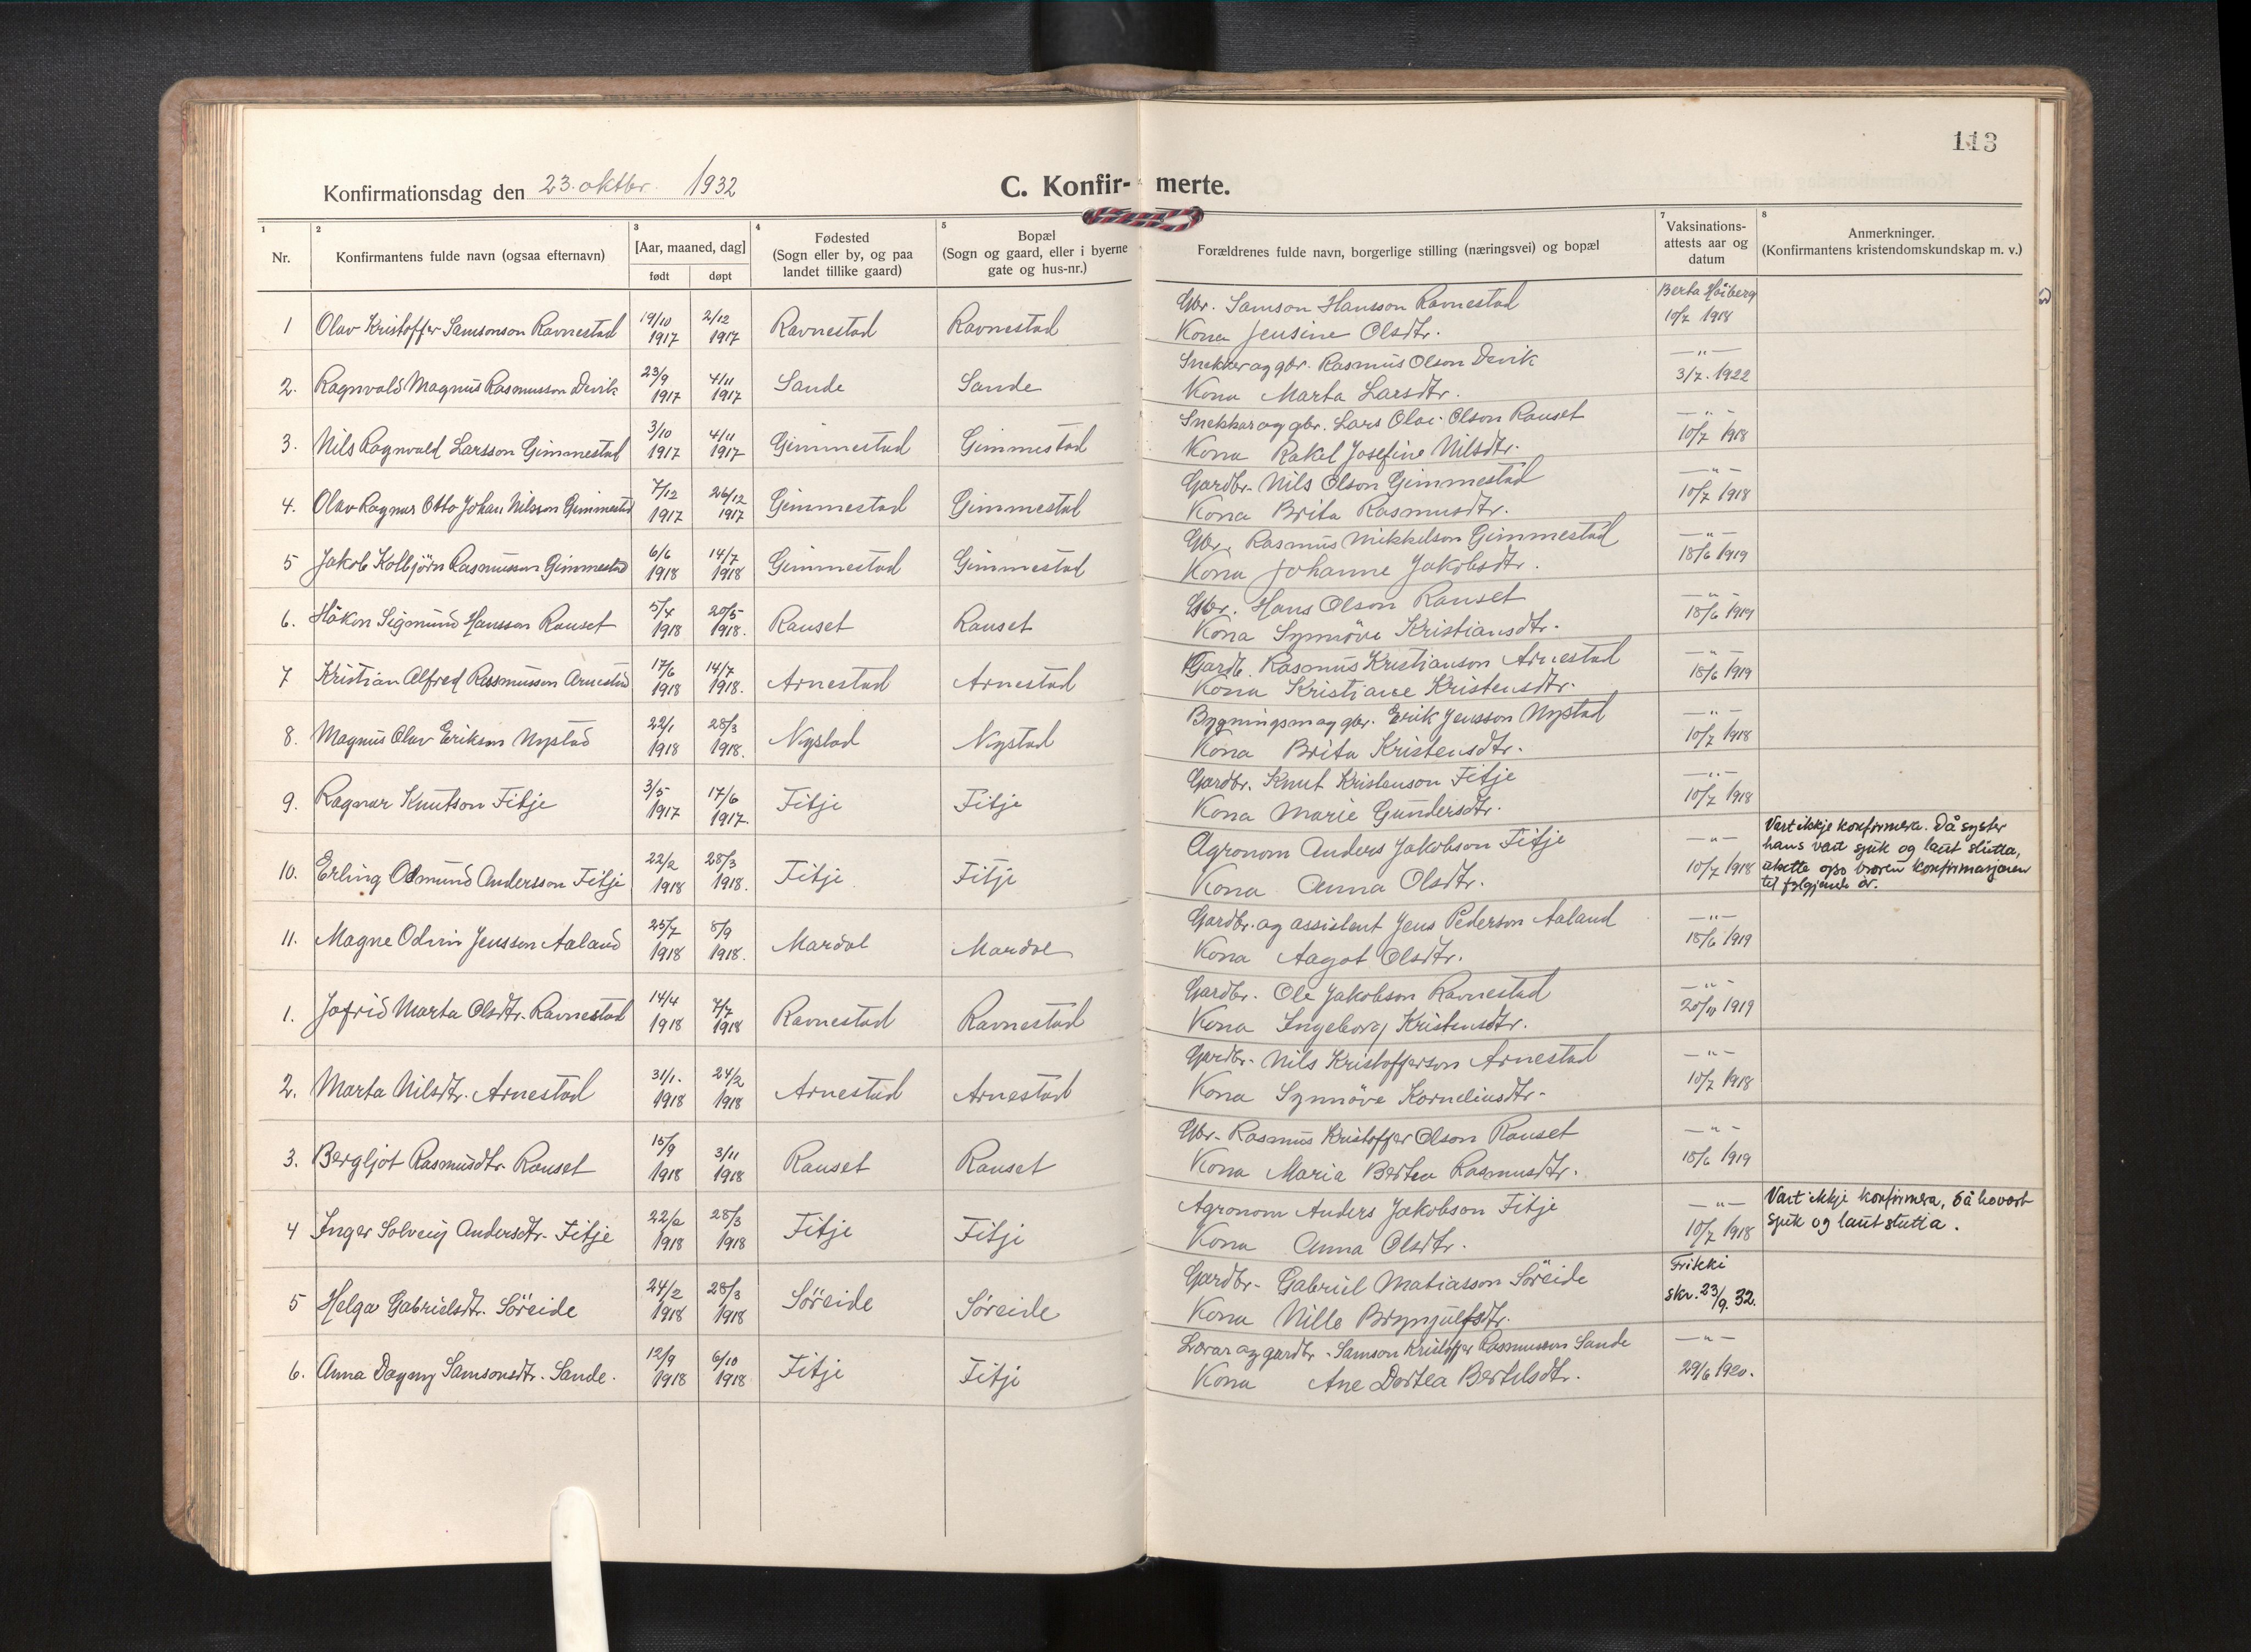 113
Konfirmationsdag den 23. oktbr. 1932
C. Konfir- merte.
1 2 3 4 5 7 8
Nr. Konfirmantens fulde navn (ogsaa efternavn) [Aar, maaned, dag] født døpt Fødested (Sogn eller by, og paa landet tillike gaard) Bopæl (Sogn og gaard, eller i byerne gate og hus-nr.) Forældrenes fulde navn, borgerlige stilling (næringsvei) og bopæl Vaksinations-attests aar og datum Anmerkninger. (Konfirmantens kristendomskundskap m. v.)
1 Olav Kristoffer Samsonson Ravnestad 19/10 1917 2/12 1917 Ravnestad Ravnestad Gbr. Samson Hansson Ravnestad Berta Høiberg
Kona Jensine Olsdtr. 10/7 1918
2. Ragnvald Magnus Rasmusson Devik 23/9 1917 4/11 1917 Sande Sande Snekker og gbr. Rasmus Olson Devik — " —
Kona Marta Larsdtr. 3/7. 1922
3. Nils Ragnvald Larsson Gimmestad 3/10 1917 4/11 1917 Gimmestad Gimmestad Snekkar og gbr. Lars Olai Olson Rauset — " —
Kona Rakel Josefine Nilsdtr. 10/7 1918
4. Olav Ragnar Otto Johan Nilsson Gimmestad 7/12 1917 26/12 1917 Gimmestad Gimmestad Gardbr. Nils Olson Gimmestad — " —
Kona Brita Rasmusdtr. 10/7 1918
5 Jakob Kolbjörn Rasmusson Gimmestad 6/6 1918 14/7 1918 Gimmestad Gimmestad Gbr. Rasmus Mikkelson Gimmestad — " —
Kona Johanne Jakobsdtr. 18/6 1919
6. Håkon Sigmund Hansson Rauset 5/4 1918 20/5 1918. Rauset Rauset Gbr. Hans Olson Rauset — " —
Kona Synnöve Kristiansdtr. 18/6 1919
7 Kristian Alfred Rasmusson Arnestad 17/6 1918 14/7 1918. Arnestad Arnestad Gardb. Rasmus Kristianson Arnestad — " —
Kona Kristiane Kristensdtr. 18/6 1919
8. Magnus Olav Erikson Nystad 22/1 1918 28/3 1918. Nystad Nystad Bygningsm og gbr. Erik Jensson Nystad — " —
Kona Brita Kristensdtr. 10/7 1918
9. Ragnar Knutson Fitje 3/5 1917 17/6 1917. Fitje Fitje Gardbr. Knut Kristenson Fitje — " —
Kona Marie Gundersdtr. 10/7 1918
10. Erling Odmund Andersson Fitje 22/2 1918 28/3 1918. Fitje Fitje Agronom Anders Jakobson Fitje — " — Vart ikkje konfirmera. Då syster
hans vart sjuk og laut slutta,
Kona Anna Olsdtr. 10/7 1918 utsette opso broren konfirmasjonen
til fylgjande år.
11. Magne Odvin Jensson Aaland 25/7 1918 8/9 1918. Mardal Mardal Gardbr. og assistent Jens Pederson Aaland — " —
Kona Aagot Olsdtr. 18/6 1919
1. Jofrid Marta Olsdtr. Ravnestad 14/4 1918 7/7 1918 Ravnestad Ravnestad Gardbr. Ole Jakobson Ravnestad — " —
Kona Ingeborg Kristensdtr. 20/10 1919
2. Marta Nilsdtr. Arnestad 31/1. 1918 24/2 1918 Arnestad Arnestad Gardbr. Nils Kristofferson Arnestad — " —
Kona Synnöve Korneliusdtr. 10/7 1918
3. Bergljot Rasmusdtr. Rauset 15/9 1918 3/11 1918 Rauset Rauset Gbr. Rasmus Kristoffer Olson Rauset — " —
Kona Maria Bertea Rasmusdtr. 18/6 1919
4 Inger Solveig Andersdtr. Fitje 22/2 1918 28/3 1918 Fitje Fitje Agronom Anders Jakobson Fitje — " — Vart ikkje konfirmera, då ho vart
Kona Anna Olsdtr. 10/7 1918 sjuk og laut slutta.
5 Helga Gabrielsdtr. Söreide 24/2 1918 28/3 1918 Söreide Söreide Gardbr. Gabriel Matiasson Söreide Friteki
Kona Nille Brynjulfsdtr. skr. 23/9. 32.
6. Anna Dagny Samsonsdtr. Sande. 12/9 1918 6/10 1918 Fitje Fitje Lærar og gardbr. Samson Kristoffer Rasmusson Sande — " —
Kona Ane Dortea Bertelsdtr. 29/6 1920.